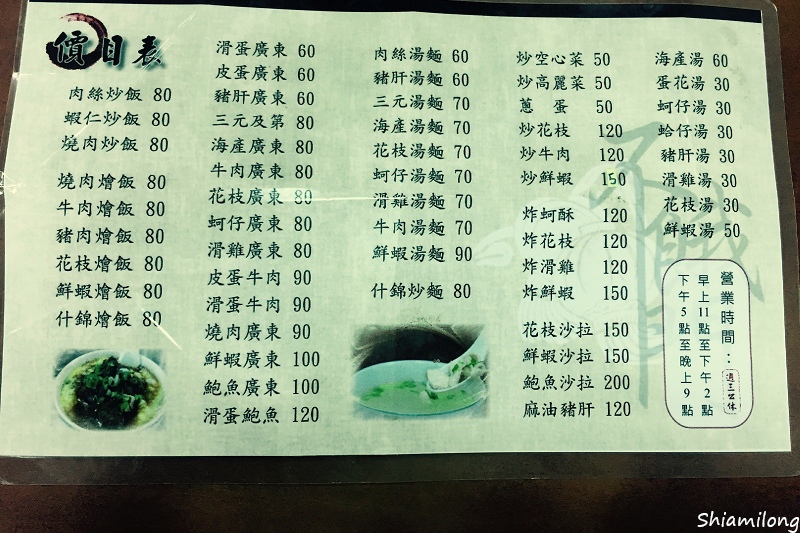 價目表
肉絲炒飯 80
蝦仁炒飯 80
燒肉炒飯 80
燒肉燴飯 80
牛肉燴飯 80
豬肉燴飯 80
花枝燴飯 80
鮮蝦燴飯 80
什錦燴飯 80
滑蛋廣東 60
皮蛋廣東 60
豬肝廣東 60
三元及第 80
海產廣東 80
牛肉廣東 80
花枝廣東 80
蚵仔廣東 80
滑雞廣東 80
皮蛋牛肉 90
滑蛋牛肉 90
燒肉廣東 90
鮮蝦廣東 100
鮑魚廣東 100
滑蛋鮑魚 120
肉絲湯麵 60
豬肝湯麵 60
三元湯麵 70
海產湯麵 70
花枝湯麵 70
蚵仔湯麵 70
滑雞湯麵 70
牛肉湯麵 70
鮮蝦湯麵 90
什錦炒麵 80
炒空心菜 50
炒高麗菜 50
蔥 蛋 50
炒花枝 120
炒牛肉 120
炒鮮蝦 150
炸蚵酥 120
炸花枝 120
炸滑雞 120
炸鮮蝦 150
花枝沙拉 150
鮮蝦沙拉 150
鮑魚沙拉 200
麻油豬肝 120
海產湯 60
蛋花湯 30
蚵仔湯 30
蛤仔湯 30
豬肝湯 30
滑雞湯 30
花枝湯 30
鮮蝦湯 50
營業時間：
週三公休
早上11點至下午2點
下午5點至晚上9點
Shiamilong